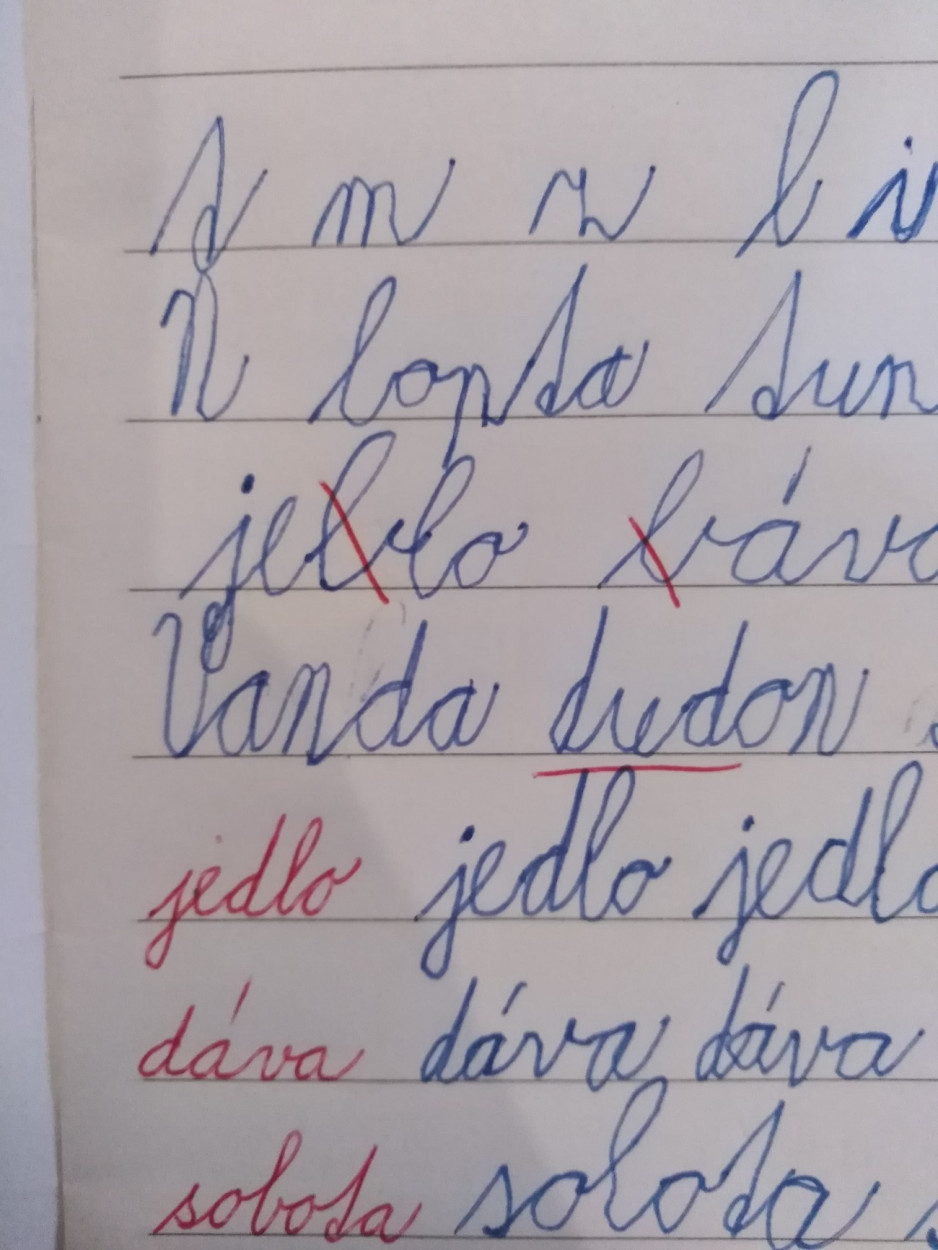 t m n l i
N lopta tun
jeblo báva
Vanda tudon
jedlo jedlo jedlo
dáva dáva dáva
sobota sobota s